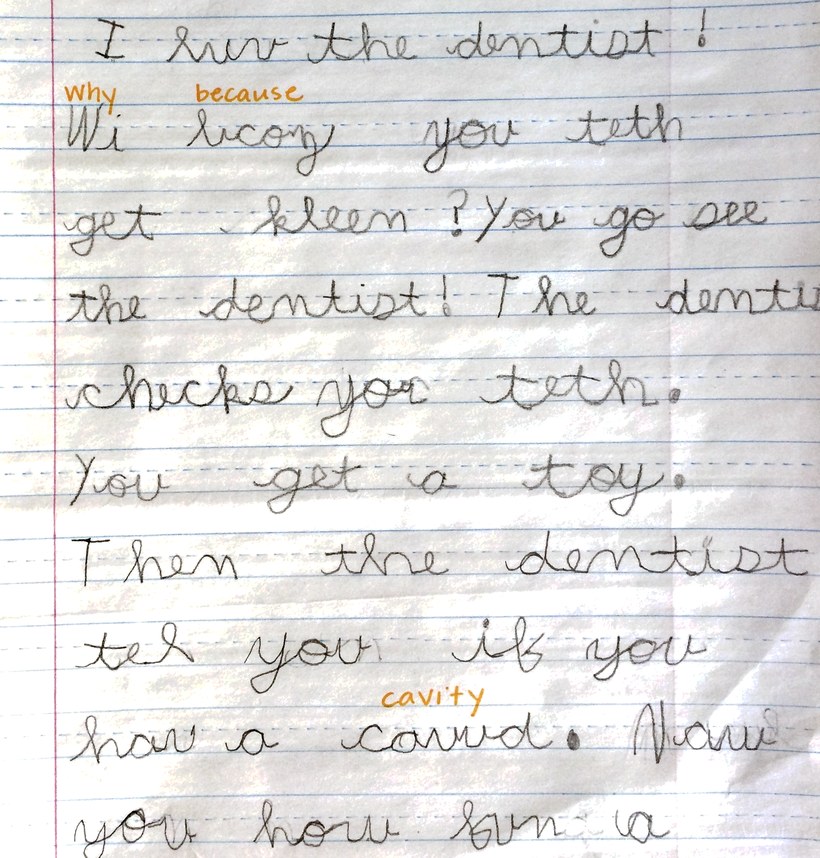 I luv the dentist!
why because
Wi bicoz you teth
get kleen? You go see
the dentist! The denti
checks yor teth.
You get a toy.
Then the dentist
tel you if you
cavity
hav a cavud. Naw
you how fun a